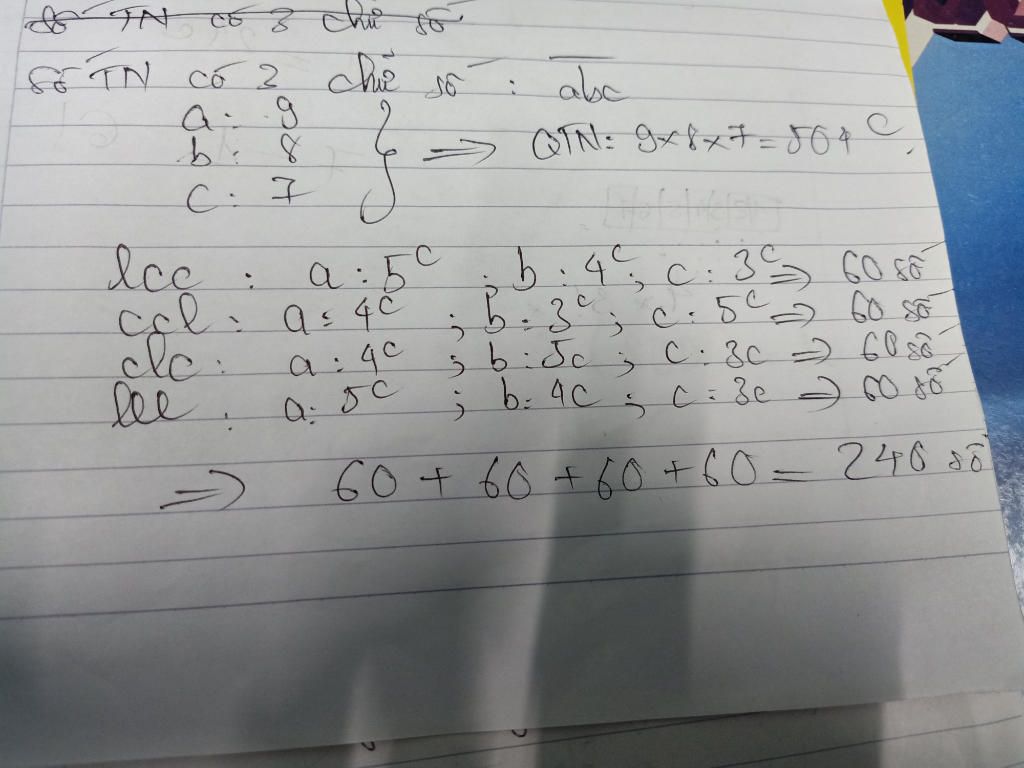 số TN có 3 chữ số
số TN có 3 chữ số : abc
a : 9
b : 8
c : 7
} => QTN: 9x8x7 = 504 C
lcc : a : 5c ; b : 4c ; c : 3c => 60 số
ccl : a : 4c ; b : 3c ; c : 5c => 60 số
clc : a : 4c ; b : 5c ; c : 3c => 60 số
lll : a : 5c ; b : 4c ; c : 3c => 60 số
=> 60 + 60 + 60 + 60 = 240 số